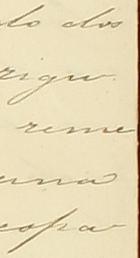 do dos
rigu
reme
uma
copa